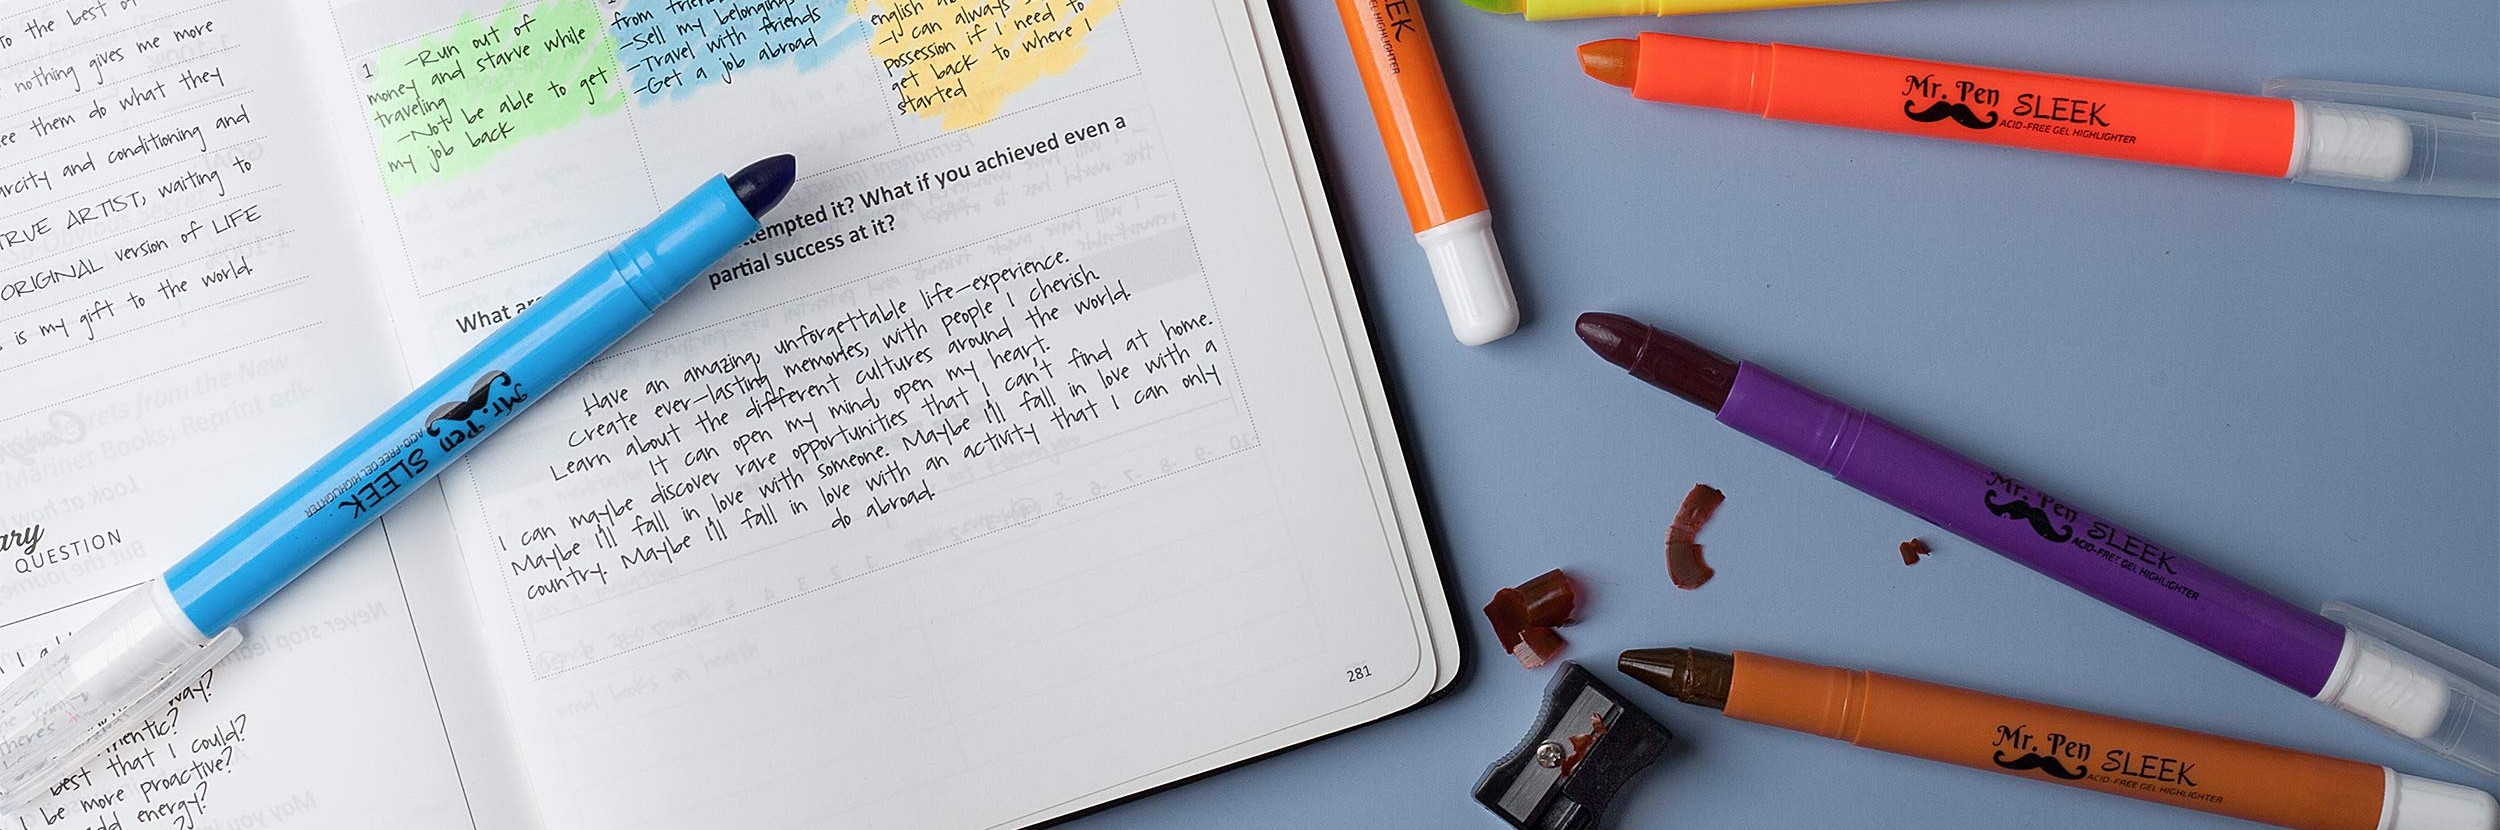 to the best of
nothing gives me more
see them do what they
scarcity and conditioning and
TRUE ARTIST, waiting to
ORIGINAL version of LIFE
is my gift to the world.
QUESTION
best that I could?
be more proactive?
energy?
1
-Run out of
money and starve while
traveling
-Not be able to get
my job back
from
-Sell my belongings
-Travel with friends
-Get a job abroad
english
-I can always
possession if I need to
get back to where I
started
What
attempted it? What if you achieved even a
partial success at it?
Have an amazing, unforgettable life-experience.
Create ever-lasting memories, with people I cherish.
Learn about the different cultures around the world.
It can open my mind, open my heart.
I can maybe discover rare opportunities that I can't find at home.
Maybe I'll fall in love with someone. Maybe I'll fall in love with a
country. Maybe I'll fall in love with an activity that I can only
do abroad.
281
Mr. Pen SLEEK
ACID-FREE GEL HIGHLIGHTER
SLEEK
HIGHLIGHTER
Mr. Pen SLEEK
ACID-FREE GEL HIGHLIGHTER
Mr. Pen SLEEK
ACID-FREE GEL HIGHLIGHTER
Mr. Pen SLEEK
ACID-FREE GEL HIGHLIGHTER